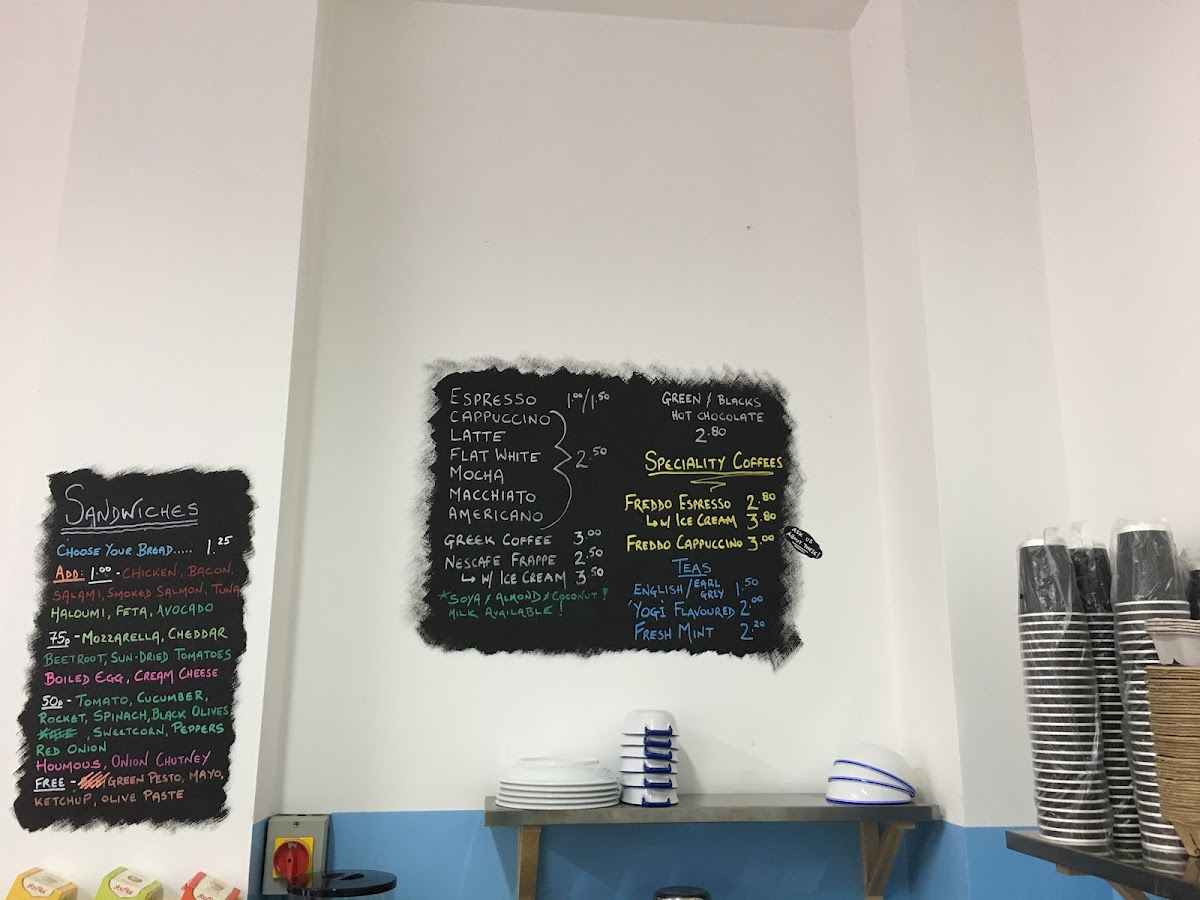 SANDWICHES
CHOOSE YOUR BREAD..... 1.25
ADD: 1.00 - CHICKEN, BACON,
SALAMI, SMOKED SALMON, TUNA
HALOUMI, FETA, AVOCADO
75p - MOZZARELLA, CHEDDAR
BEETROOT, SUN-DRIED TOMATOES
BOILED EGG, CREAM CHEESE
50p - TOMATO, CUCUMBER,
ROCKET, SPINACH, BLACK OLIVES
, SWEETCORN, PEPPERS
RED ONION
HOUMOUS, ONION CHUTNEY
FREE - GREEN PESTO, MAYO,
KETCHUP, OLIVE PASTE
ESPRESSO 1.00/1.50
CAPPUCCINO
LATTE
FLAT WHITE 2.50
MOCHA
MACCHIATO
AMERICANO
GREEK COFFEE 3.00
NESCAFE FRAPPE 2.50
↳ W/ ICE CREAM 3.50
*SOYA / ALMOND / COCONUT !
MILK AVAILABLE !
GREEN / BLACKS
HOT CHOCOLATE
2.80
SPECIALITY COFFEES
FREDDO ESPRESSO 2.80
↳ W/ ICE CREAM 3.80
FREDDO CAPPUCCINO 3.00
ASK US
ABOUT THESE!
TEAS
ENGLISH / EARL GREY 1.50
'YOGI FLAVOURED 2.00
FRESH MINT 2.20